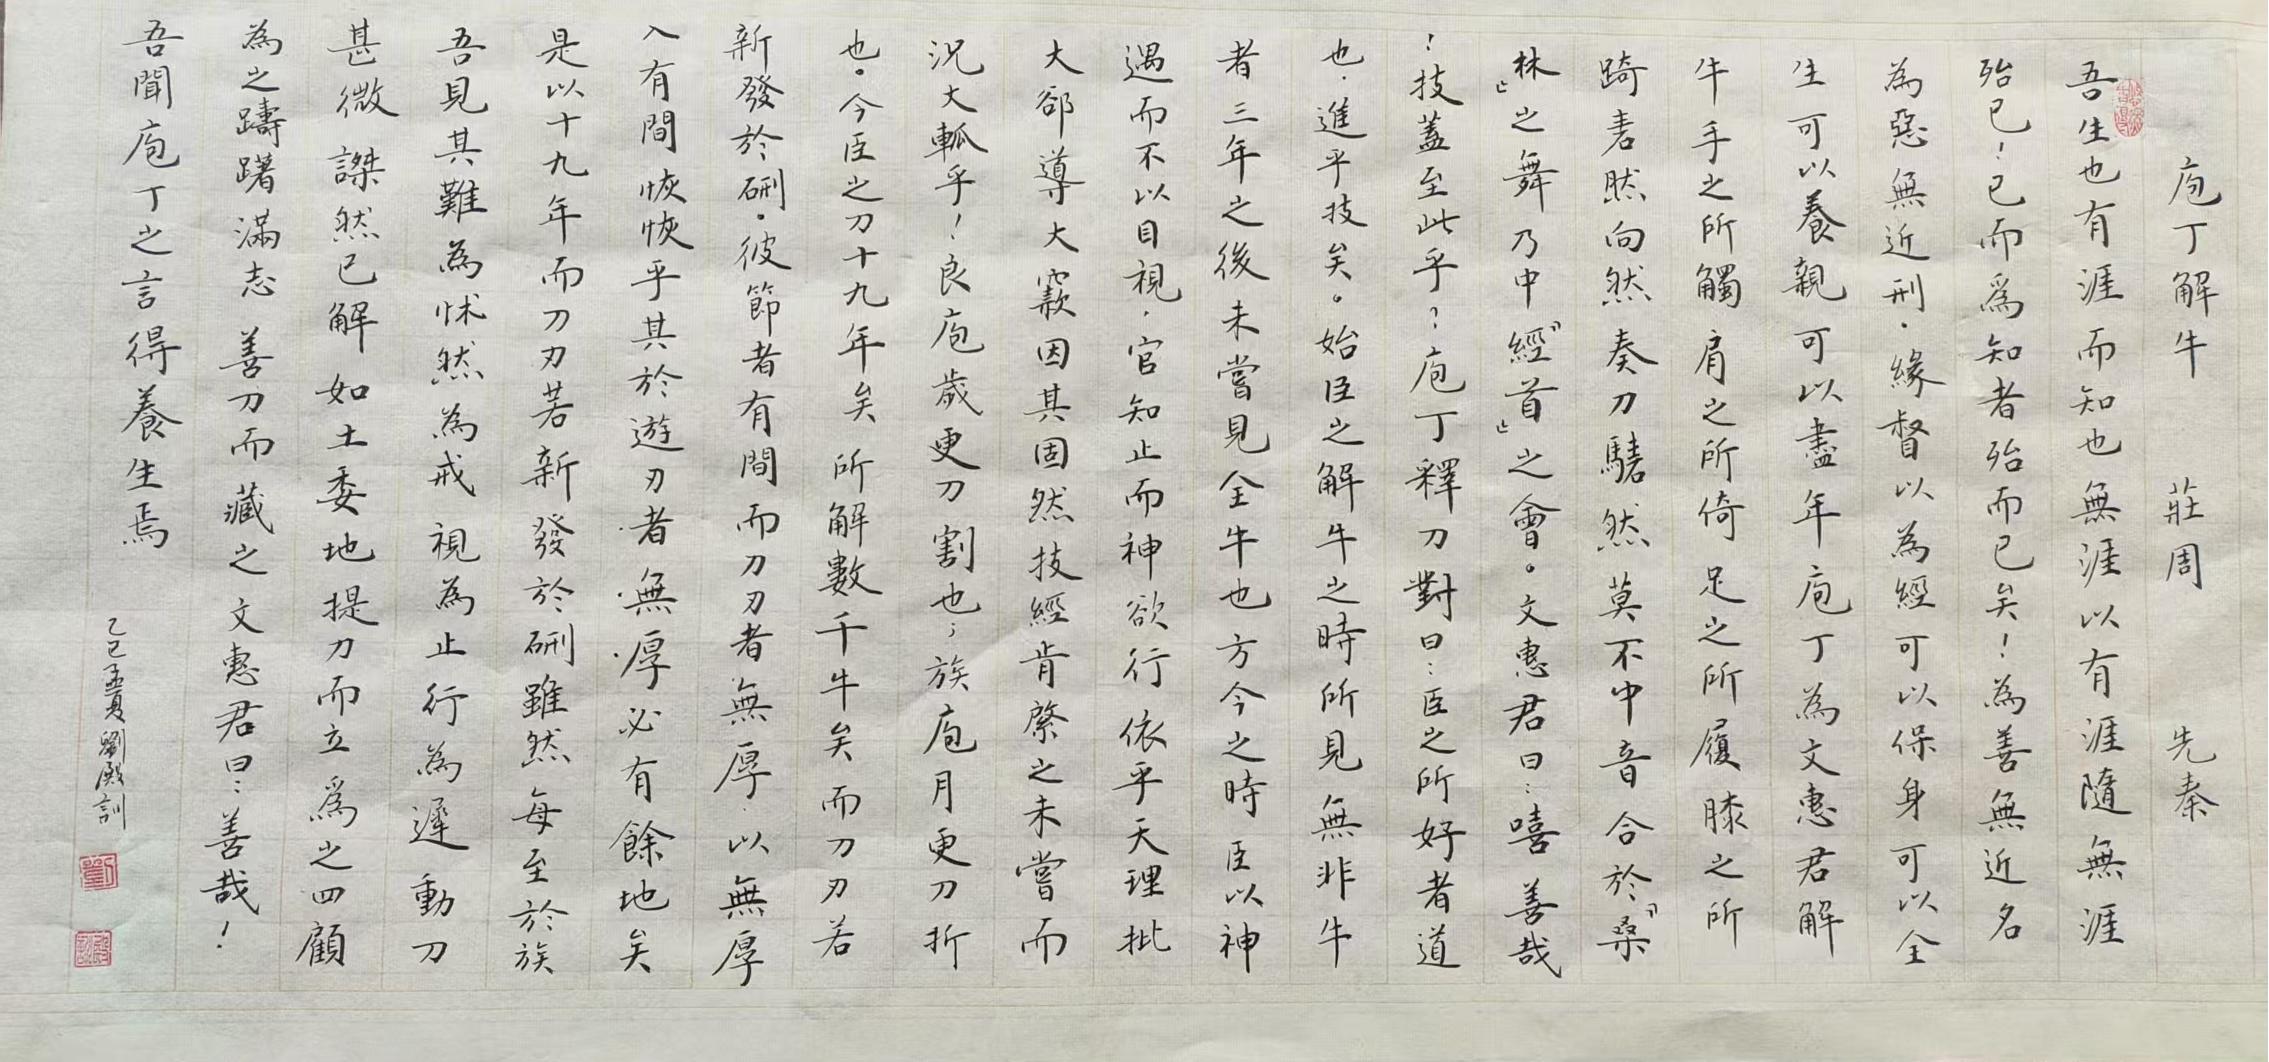 庖丁解牛 莊周 先秦
吾生也有涯而知也無涯以有涯隨無涯
殆已！已而爲知者殆而已矣！為善無近名
為惡無近刑．緣督以為經可以保身可以全
生可以養親可以盡年庖丁為文惠君解
牛手之所觸肩之所倚足之所履膝之所
踦砉然向然奏刀騞然莫不中音合於『桑
林』之舞乃中『經首』之會。文惠君曰：嘻善哉
！技蓋至此乎？庖丁釋刀對曰：臣之所好者道
也．進乎技矣。始臣之解牛之時所見無非牛
者三年之後未嘗見全牛也方今之時臣以神
遇而不以目視．官知止而神欲行依乎天理批
大郤導大窾因其固然技經肯綮之未嘗而
況大軱乎！良庖歲更刀割也；族庖月更刀折
也。今臣之刀十九年矣所解數千牛矣而刀刃若
新發於硎．彼節者有間而刀刃者無厚．以無厚
入有間恢恢乎其於遊刃者無厚必有餘地矣
是以十九年而刀刃若新發於硎雖然每至於族
吾見其難為怵然為戒視為止行為遲動刀
甚微謋然已解如土委地提刀而立爲之四顧
為之躊躇滿志善刀而藏之文惠君曰：善哉！
吾聞庖丁之言得養生焉
乙巳孟夏劉殿訓